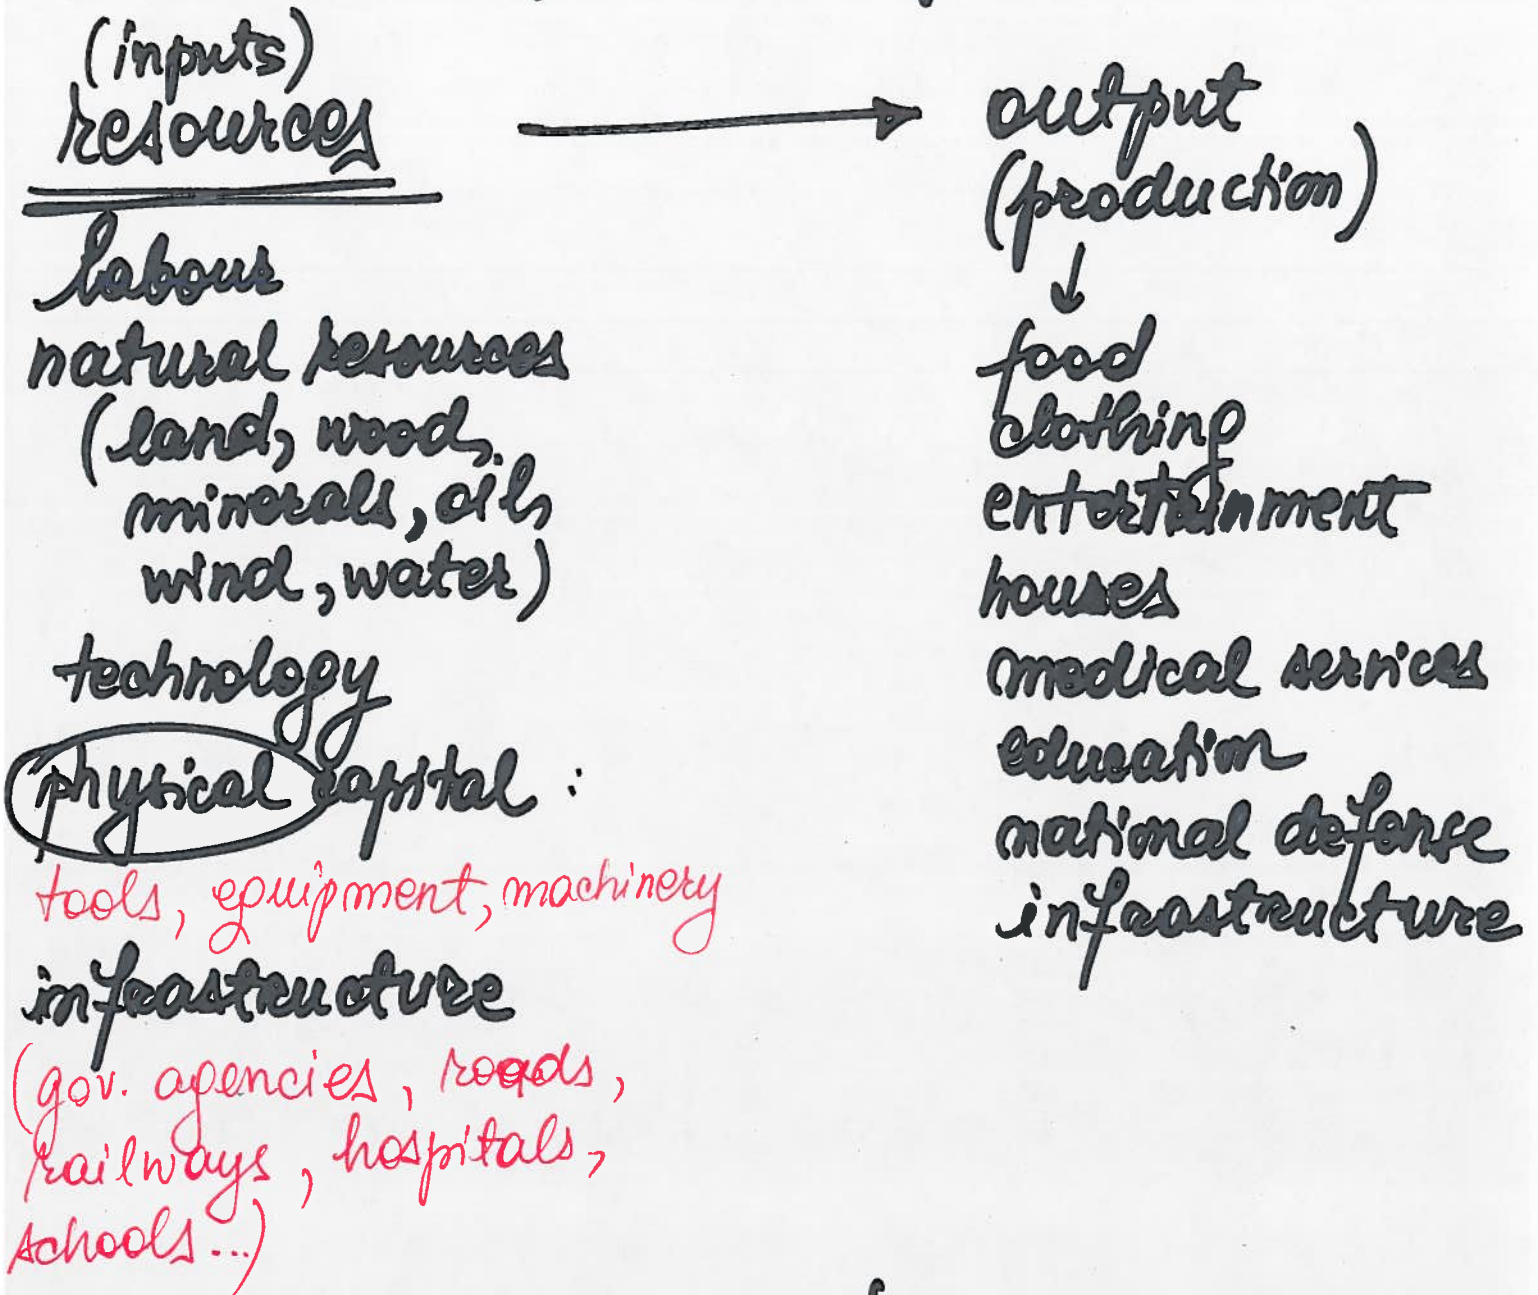 (inputs)
resources
labour
natural resources
(land, wood,
minerals, oil,
wind, water)
technology
physical capital :
tools, equipment, machinery
infrastructure
(gov. agencies, roads,
railways, hospitals,
schools...)
output
(production)
food
clothing
entertainment
houses
medical services
education
national defense
infrastructure